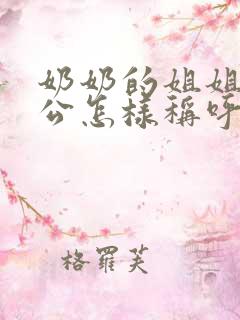 奶奶的姐姐
公怎樣稱呼
格羅芙